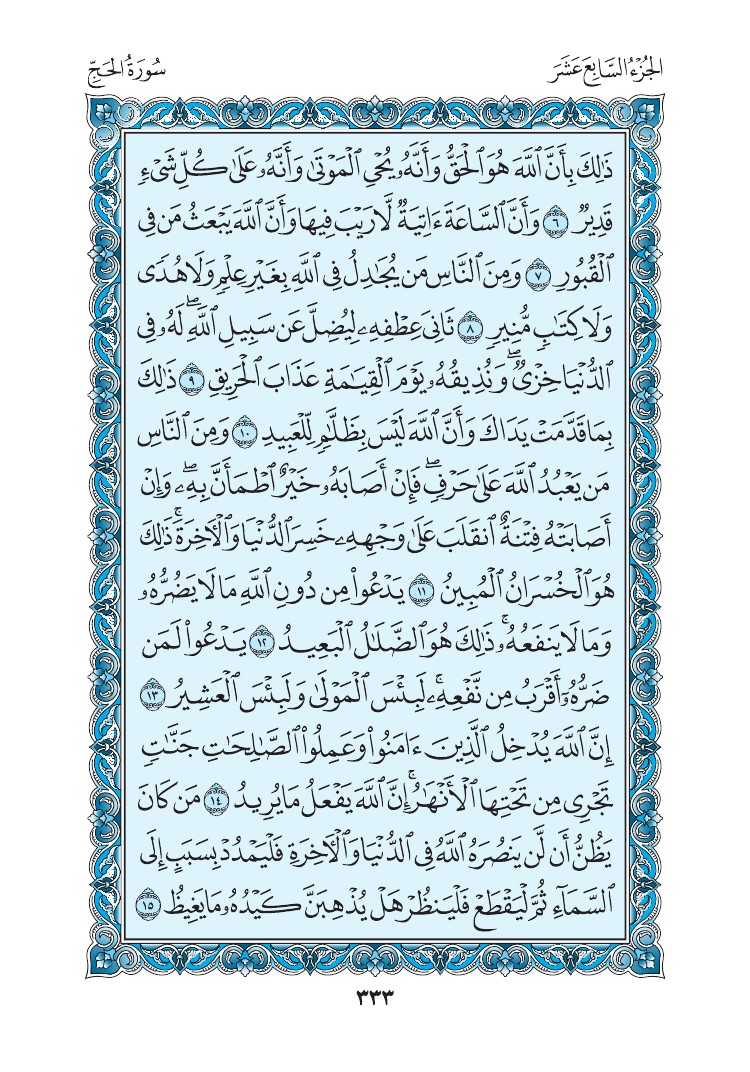 الجُزْءُ السَّابِعَ عَشَرَ
سُورَةُ الحَجِّ
ذَٰلِكَ بِأَنَّ ٱللَّهَ هُوَ ٱلْحَقُّ وَأَنَّهُۥ يُحْىِ ٱلْمَوْتَىٰ وَأَنَّهُۥ عَلَىٰ كُلِّ شَىْءٍ
قَدِيرٌ ٦ وَأَنَّ ٱلسَّاعَةَ ءَاتِيَةٌ لَّا رَيْبَ فِيهَا وَأَنَّ ٱللَّهَ يَبْعَثُ مَن فِى
ٱلْقُبُورِ ٧ وَمِنَ ٱلنَّاسِ مَن يُجَٰدِلُ فِى ٱللَّهِ بِغَيْرِ عِلْمٍ وَلَا هُدًى
وَلَا كِتَٰبٍ مُّنِيرٍ ٨ ثَانِىَ عِطْفِهِۦ لِيُضِلَّ عَن سَبِيلِ ٱللَّهِ ۖ لَهُۥ فِى
ٱلدُّنْيَا خِزْىٌ ۖ وَنُذِيقُهُۥ يَوْمَ ٱلْقِيَٰمَةِ عَذَابَ ٱلْحَرِيقِ ٩ ذَٰلِكَ
بِمَا قَدَّمَتْ يَدَاكَ وَأَنَّ ٱللَّهَ لَيْسَ بِظَلَّٰمٍ لِّلْعَبِيدِ ١٠ وَمِنَ ٱلنَّاسِ
مَن يَعْبُدُ ٱللَّهَ عَلَىٰ حَرْفٍ ۖ فَإِنْ أَصَابَهُۥ خَيْرٌ ٱطْمَأَنَّ بِهِۦ ۖ وَإِنْ
أَصَابَتْهُ فِتْنَةٌ ٱنقَلَبَ عَلَىٰ وَجْهِهِۦ خَسِرَ ٱلدُّنْيَا وَٱلْءَاخِرَةَ ۚ ذَٰلِكَ
هُوَ ٱلْخُسْرَانُ ٱلْمُبِينُ ١١ يَدْعُوا۟ مِن دُونِ ٱللَّهِ مَا لَا يَضُرُّهُۥ
وَمَا لَا يَنفَعُهُۥ ۚ ذَٰلِكَ هُوَ ٱلضَّلَٰلُ ٱلْبَعِيدُ ١٢ يَدْعُوا۟ لَمَن
ضَرُّهُۥٓ أَقْرَبُ مِن نَّفْعِهِۦ ۚ لَبِئْسَ ٱلْمَوْلَىٰ وَلَبِئْسَ ٱلْعَشِيرُ ١٣
إِنَّ ٱللَّهَ يُدْخِلُ ٱلَّذِينَ ءَامَنُوا۟ وَعَمِلُوا۟ ٱلصَّٰلِحَٰتِ جَنَّٰتٍ
تَجْرِى مِن تَحْتِهَا ٱلْأَنْهَٰرُ ۚ إِنَّ ٱللَّهَ يَفْعَلُ مَا يُرِيدُ ١٤ مَن كَانَ
يَظُنُّ أَن لَّن يَنصُرَهُ ٱللَّهُ فِى ٱلدُّنْيَا وَٱلْءَاخِرَةِ فَلْيَمْدُدْ بِسَبَبٍ إِلَى
ٱلسَّمَآءِ ثُمَّ لْيَقْطَعْ فَلْيَنظُرْ هَلْ يُذْهِبَنَّ كَيْدُهُۥ مَا يَغِيظُ ١٥
٣٣٣